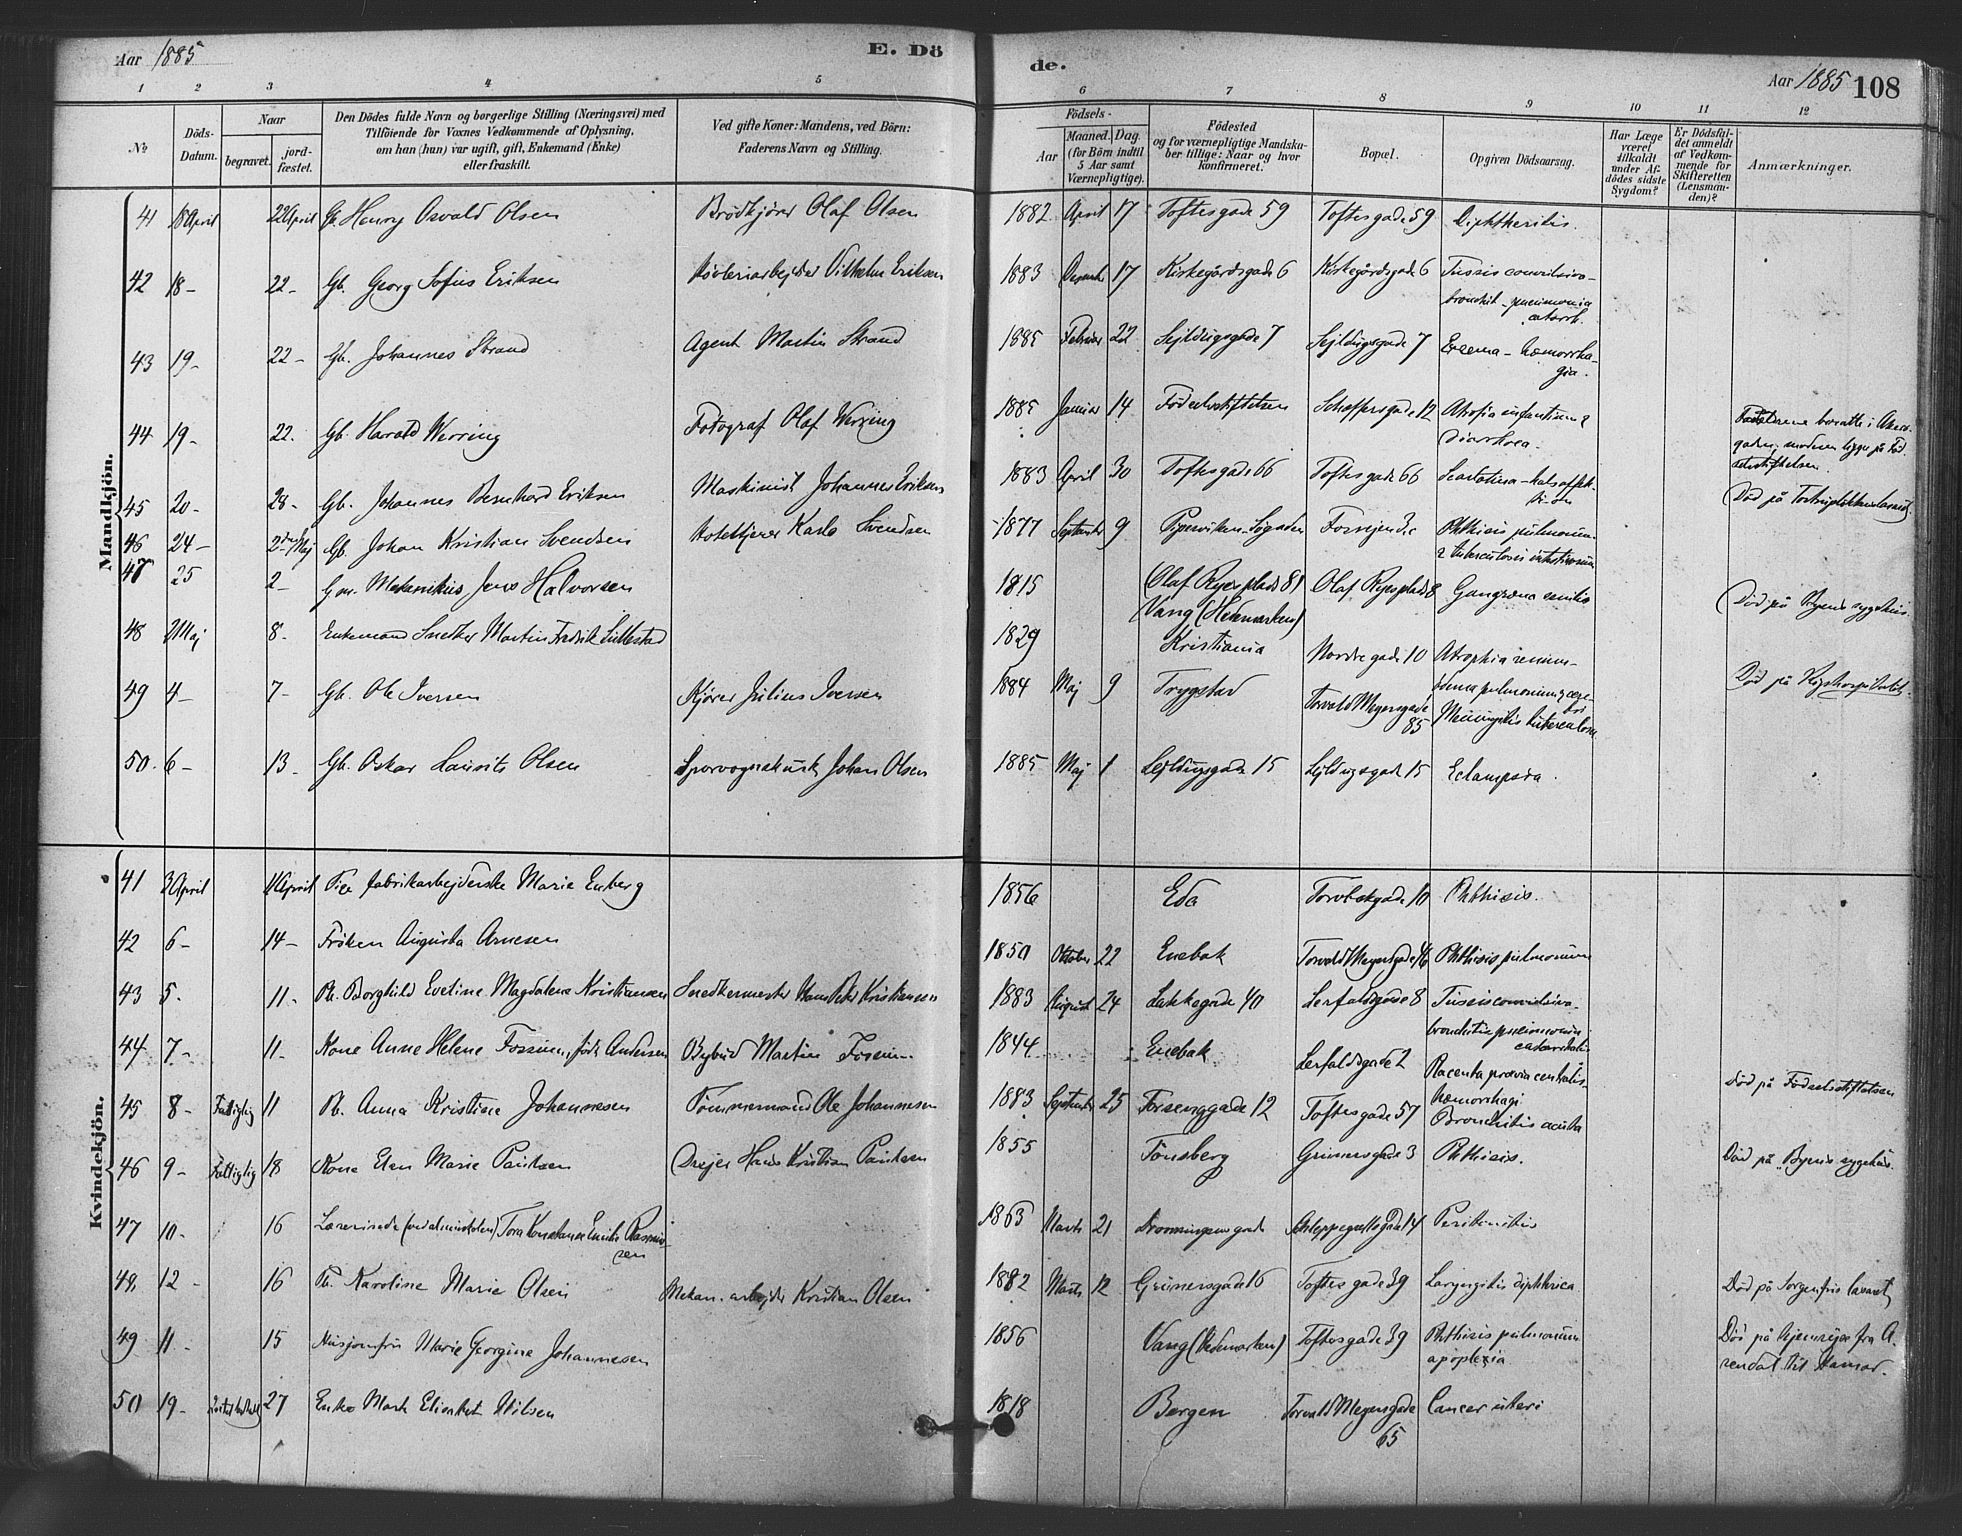 Aar 1885
E. Dö
de.
Aar 1885 108
1 2 3 4 5 6 7 8 9 10 11 12
No
Döds-Datum.
Naar
begravet.
jordfæstet.
Den Dödes fulde Navn og borgerlige Stilling (Næringsvei) med
Tilföiende for Voxnes Vedkommende af Oplysning,
om han (hun) var ugift, gift, Enkemand (Enke)
eller fraskilt.
Ved gifte Koner: Mandens, ved Börn:
Faderens Navn og Stilling.
Födsels-
Aar
Maaned. Dag.
(for Börn indtil
5 Aar samt
Værnepligtige).
Födested
og for værnepligtige Mandskaber tillige: Naar og hvor
konfirmeret.
Bopæl.
Opgiven Dödsaarsag.
Har Læge
været
tilkaldt
under Afdödes sidste
Sygdom?
Er Dödsfaldet anmeldt
af Vedkommende for
Skifteretten
(Lensmanden)?
Anmærkninger.
Mandkjön.
41 18 April 22 April Gb. Henry Osvald Olsen Brödkjörer Olaf Olsen 1882 April 17 Toftesgade 59 Toftesgade 59 Diphtheritis.
42 18 - 22 - Gb. Georg Sofus Eriksen Vilhelm Eriksen 1883 17 Kirkegårdsgade 6 Kirkegårdsgade 6 Tussis convulsiva -
bronchit - pneumonia
catarrh.
43 19 - 22 - Gb. Johannes Strand Agent Martin Strand 1885 Februar 22 Sejldugsgade 7 Sejldugsgade 7 Eczema - hæmorrhagia.
44 19 - 22. Gb. Harald Werring Fotograf Olaf Werring 1885 Januar 14 Födselsstiftelsen Schæffersgade 12 Atrofia infantium &
Diarrhoea. Forældrene bosatte i Akersgaden, moderen ligger på Födselsstiftelsen.
45 20 - 28 - Gb. Johannes Bernhard Eriksen Maskinist Johannes Eriksen 1883 April 30 Toftesgade 66 Toftesgade 66 Scarlatina - Död på
46 24 - 2den Maj Gb. Johan Kristian Svendsen Karlo Svendsen 1877 September 9 Pipervikens Søgaden Fossvejen 3c Phthisis pulmonum
& tuberculosis intestinorum
47 25 2 - Gm. Mekanikus Jens Halvorsen 1815 (Olaf Ryes plads 8)
Vang (Hedemarken) Olaf Ryes plads 8 Gangræna senilis Död på Byens sygehus.
48 2 Maj 8 - Enkemand Snedker Martin Fredrik Lillestad 1829 Kristiania Nordregade 10 Atrophia renum -
Död på Rigshospitalet.
49 4 - 7 - Gb. Ole Iversen Kjörer Julius Iversen 1884 Maj 9 Trygstad Torvald Meyersgade
85 Meningitis tuberculosa
50. 6 - 13 - Gb. Oskar Laurits Olsen Sporvognskusk Johan Olsen 1885 Maj 1 Sejldugsgade 15 Sejldugsgade 15 Eclampsia.
Kvindekjön.
41 3 April 11 April Pige fabrikarbejderske Marie Enberg 1856 Eda Torvbakgade 10 Phthisis.
42 6 - 14 - Fröken Augusta Arnesen 1850 Oktober 22 Enebak Torvald Meyersgade 46 Phthisis pulmonum
43 5 - 11 - Pb. Borghild Eveline Magdalena Kristiansen Snedkermester Hans Peter Kristiansen 1883 August 24 Lakkegade 40 Lerfaldsgade 8 Tussis convulsiva -
bronchitis pneumonia
catarrhalis
44 7 - 11 - Kone Anne Helene Fossum, född Andersen Bybud Martin Fossum 1844 Enebak Lerfaldsgade 2 Placenta prævia centralis,
hæmorrhagi Död på Födselsstiftelsen
45 8 - Fattiglig 11 Pb. Anna Kristine Johannesen Tömmermand Ole Johannesen 1883 September 25 Fossveggade 12 Toftesgade 57 Bronchitis acuta
46 9 - Fattiglig 18 Kone Elen Marie Paulsen Drejer Hans Kristian Paulsen 1855 Tönsberg Grünersgade 3 Phthisis. Död på Byens sygehus.
47 10 - 16 Lærerinde (ved almueskolen) Tora Konstance Emilie Rasmussen 1863 Marts 21 Dronningensgade Schleppegrellsgade 14 Peritonitis
48. 12 - 16 Pb. Karoline Marie Olsen Mekan. arbejder Kristian Olsen 1882 Marts 12 Grünersgade 16 Toftesgade 39 Laryngitis diphtherica Död på Sorgenfris lasaret
49 11 - 15 Husjomfru Marie Georgine Johannesen 1856 Vang (Hedemarken) Toftesgade 39 Phthisis pulmonum
apoplexia Död på hjemrejse fra Arendal til Hamar.
50 19 - 27 Enke Mark Elisabet Nilsen 1818 Bergen Torvald Meyersgade
65 Cancer uteri